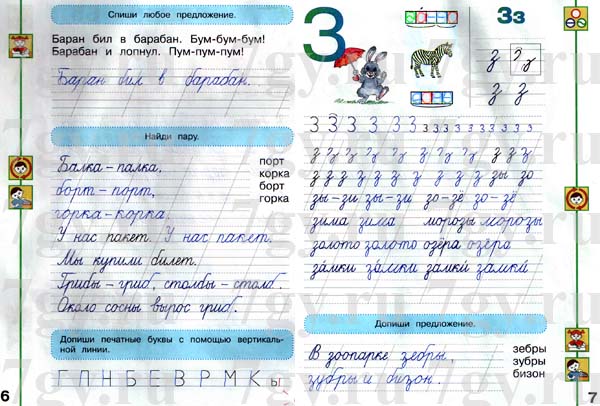 Спиши любое предложение.
Баран бил в барабан. Бум-бум-бум!
Барабан и лопнул. Пум-пум-пум!
Баран бил в барабан.
Найди пару.
Балка – палка,
борт – порт,
горка – корка.
порт
корка
борт
горка
У нас пакет. У нас пакет.
Мы купили билет.
Грибы – гриб, столбы – столб.
Около сосны вырос гриб.
Допиши печатные буквы с помощью вертикаль-
ной линии.
Г П Н Б Е В Р М К ы
6
З
Зз
З З З З З З З З З З З З З З З
з з з з з з з з з з
з з з з з з з з з з зы зо
зы-зи зы-зи зо-зё зо-зё
зима зима морозы морозы
золото золото озёра озёра
за́мки за́мки замки́ замки́
Допиши предложение.
В зоопарке зебры,
зубры и бизон.
зебры
зубры
бизон
7
7gy.ru